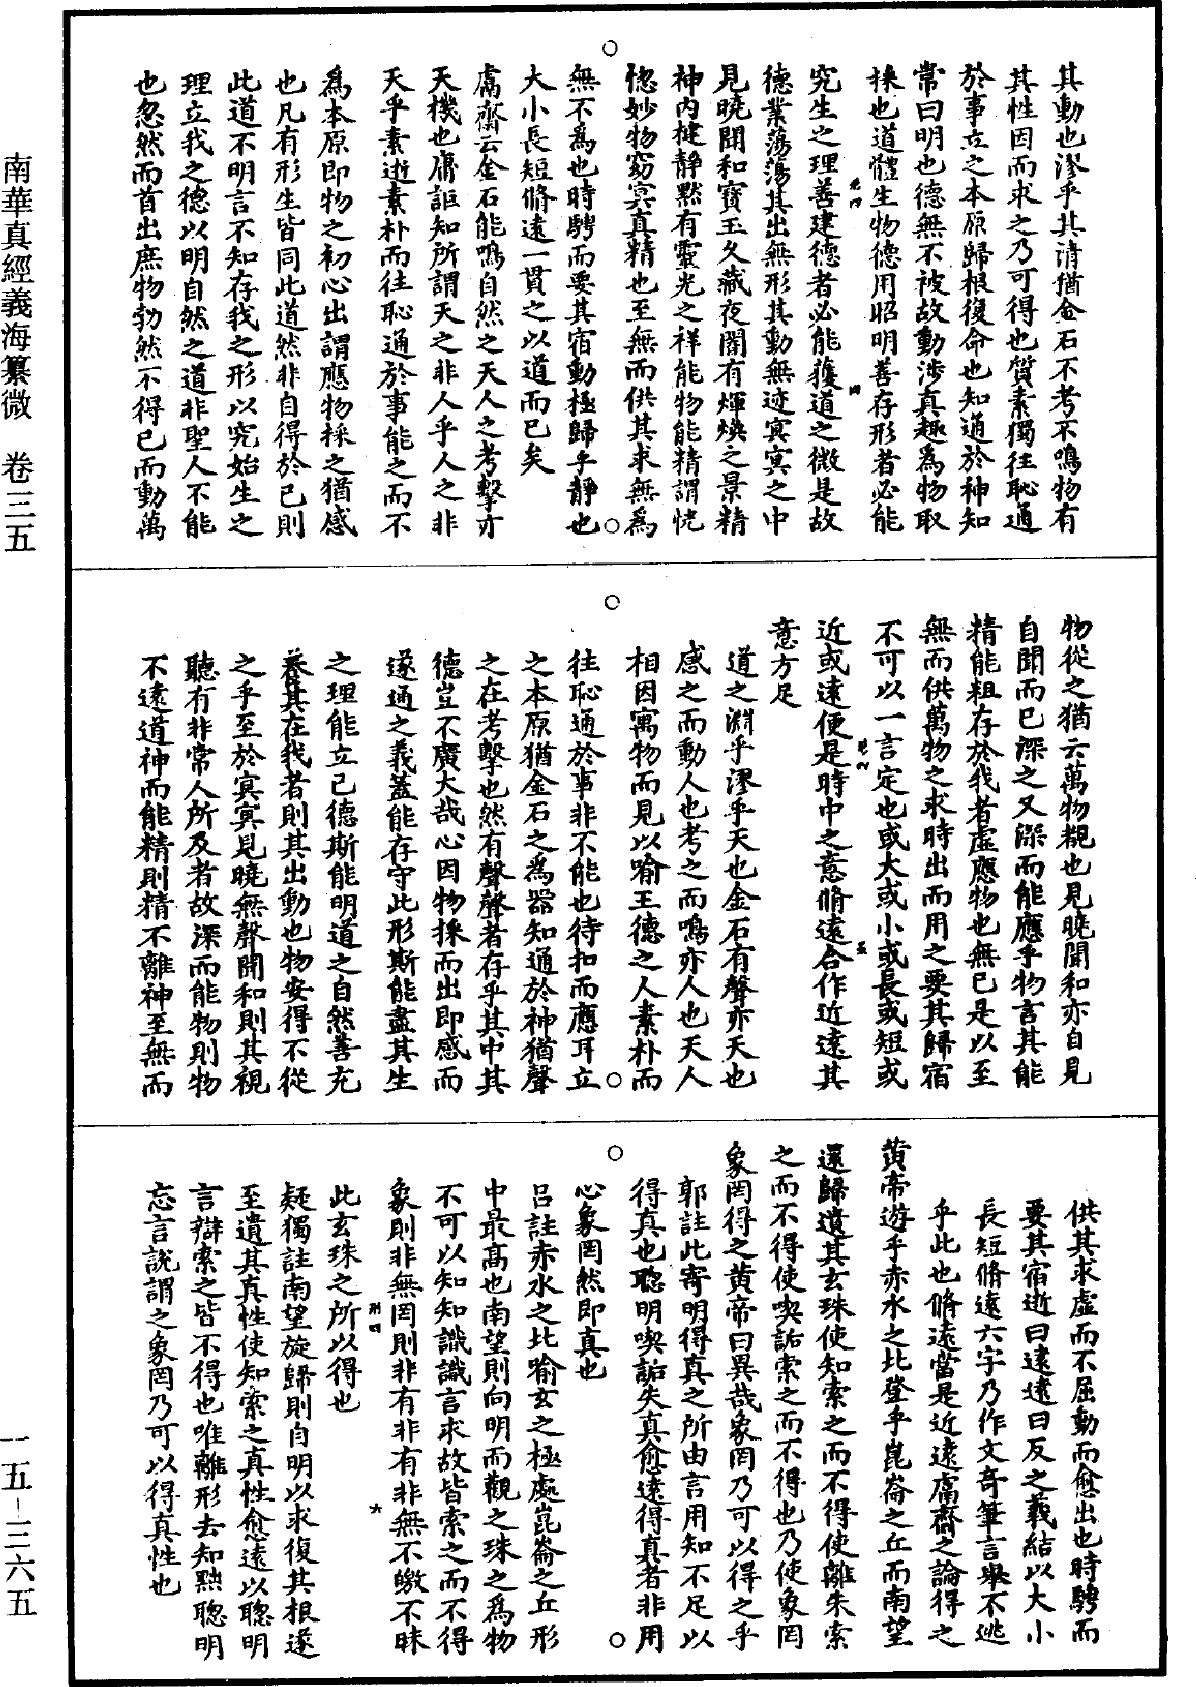 南華真經義海纂微　卷三五
其動也漻乎其清猶金石不考不鳴物有
其性因而求之乃可得也質素獨往恥通
於事立之本原歸根復命也知通於神知
常曰明也德無不被故動涉真趣為物取
採也道體生物德用昭明善存形者必能
究生之理善建德者必能獲道之微是故
德業蕩蕩其出無形其動無迹冥冥之中
見曉聞和寶玉久藏夜闇有煇煥之景精
神內楗靜默有靈光之祥能物能精謂恍
惚妙物窈冥真精也至無而供其求無為
無不為也時騁而要其宿動極歸乎靜也
大小長短脩遠一貫之以道而已矣
鬳齋云金石能鳴自然之天人之考擊亦
天機也庸詎知所謂天之非人乎人之非
天乎素逝素朴而往恥通於事能之而不
為本原即物之初心出謂應物採之猶感
也凡有形生皆同此道然非自得於己則
此道不明言不知存我之形以究始生之
理立我之德以明自然之道非聖人不能
也忽然而首出庶物勃然不得已而動萬
物從之猶云萬物覩也見曉聞和亦自見
自聞而已深之又深而能應乎物言其能
精能粗存於我者虛應物也無已是以至
無而供萬物之求時出而用之要其歸宿
不可以一言定也或大或小或長或短或
近或遠便是時中之意脩遠合作近遠其
意方足
道之淵乎漻乎天也金石有聲亦天也
感之而動人也考之而鳴亦人也天人
相因寓物而見以喻王德之人素朴而
往恥通於事非不能也待扣而應耳立
之本原猶金石之為器知通於神猶聲
之在考擊也然有聲聲者存乎其中其
德豈不廣大哉心因物採而出即感而
遂通之義蓋能存守此形斯能盡其生
之理能立己德斯能明道之自然善充
養其在我者則其出動也物安得不從
之乎至於冥冥見曉無聲聞和則其視
聽有非常人所及者故深而能物則物
不遠道神而能精則精不離神至無而
供其求虛而不屈動而愈出也時騁而
要其宿逝曰遠遠曰反之義結以大小
長短脩遠六字乃作文奇筆言舉不逃
乎此也脩遠當是近遠鬳齋之論得之
黃帝遊乎赤水之北登乎崑崙之丘而南望
還歸遺其玄珠使知索之而不得使離朱索
之而不得使喫詬索之而不得也乃使象罔
象罔得之黃帝曰異哉象罔乃可以得之乎
郭註此寄明得真之所由言用知不足以
得真也聰明喫詬失真愈遠得真者非用
心象罔然即真也
呂註赤水之北喻玄之極處崑崙之丘形
中最高也南望則向明而觀之珠之為物
不可以知知識識言求故皆索之而不得
象則非無罔則非有非有非無不皦不昧
此玄珠之所以得也
疑獨註南望旋歸則自明以求復其根遂
至遺其真性使知索之真性愈遠以聰明
言辯索之皆不得也唯離形去知黜聰明
忘言說謂之象罔乃可以得真性也
一五－三六五